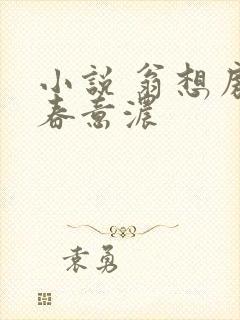 小説 翁想房
春意濃
袁勇